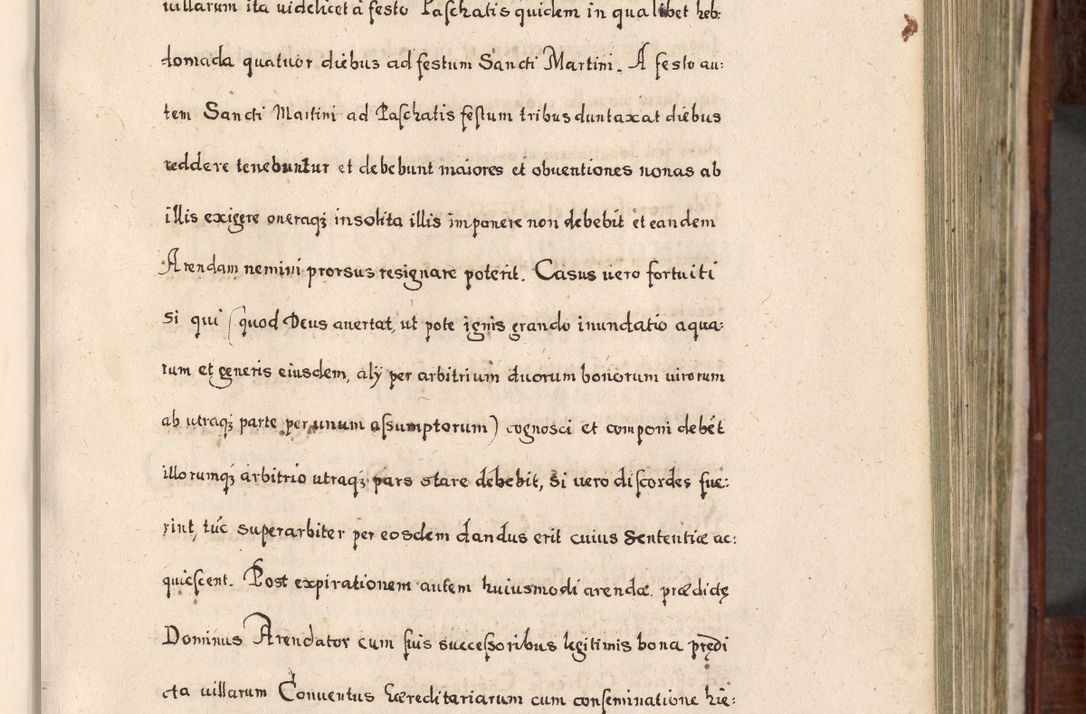 uillarum ita uidelicet à festo Paschatis quidem in qualibet heb:
domada quatuor diebus ad festum Sancti Martini. A festo au:
tem Sancti Martini ad Paschatis festum tribus duntaxat diebus
reddere tenebuntur et debebunt maiores et obuentiones nonas ab
illis exigere oneraqꝫ insolita illis imponere non debebit et eandem
Arendam nemini prorsus resignare poterit. Casus uero fortuiti
si qui (quod Deus auertat, ut pote ignis grando inundatio aqua:
rum et generis eiusdem, alÿ per arbitrium duorum bonorum uirorum
ab utraqꝫ parte per unum assumptorum) cognosci et componi debét
illorumqꝫ arbitrio utraqꝫ pars stare debebit, si uero discordes fue:
rint, túc superarbiter per eosdem dandus erit cuius sententiæ ac:
quiescent. Post expirationem autem huiusmodi arendæ prædictę
Dominus Arendator cum suis successoribus legitimis bona prędi
cta uillarum Conuentus hæreditariarum cum conseminatione hie: